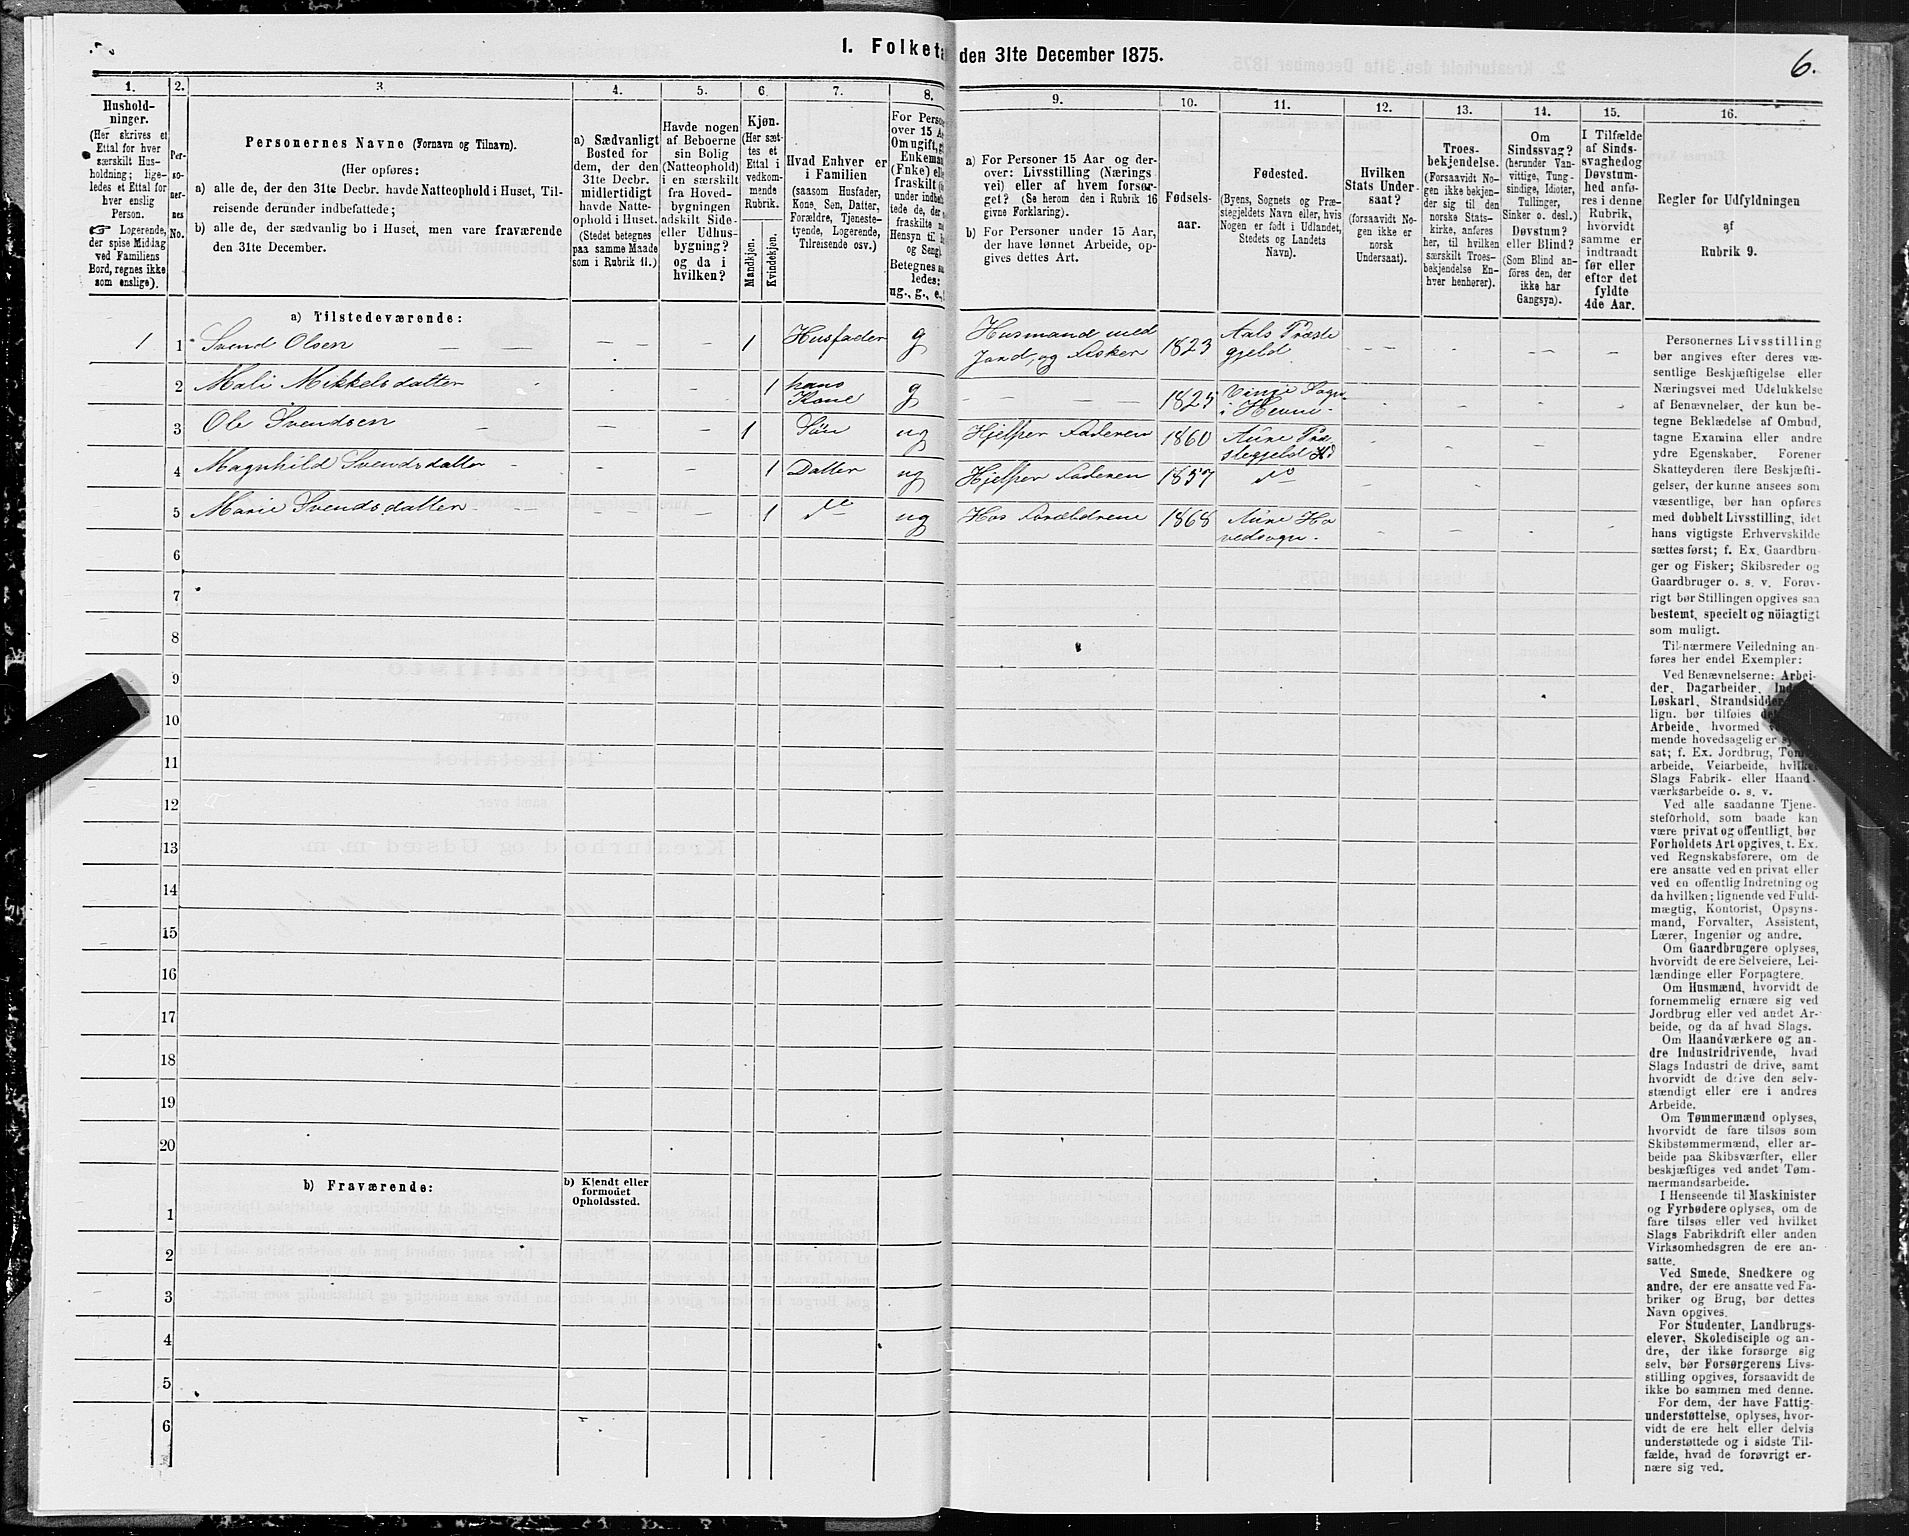 I. Folketæ den 31te December 1875.
6.
1. 2. 3. 4. 5. 6. 7. 8. 9. 10. 11. 12. 13. 14. 15. 16.
Hushold-
ninger.
(Her skrives et
Ettal for hver
særskilt Hus-
holdning; lige-
ledes et Ettal for
hver enslig
Person.
☞ Logerende,
der spise Middag
ved Familiens
Bord, regnes ikke
som enslige).
Per-
so-
ner-
nes
No.
Personernes Navne (Fornavn og Tilnavn).
(Her opføres:
a) alle de, der den 31te Decbr. havde Natteophold i Huset, Til-
reisende derunder indbefattede;
b) alle de, der sædvanlig bo i Huset, men vare fraværende
den 31te December.
a) Sædvanligt
Bosted for
dem, der den
31te Decbr.
midlertidigt
havde Natte-
ophold i Huset.
(Stedet betegnes
paa samme Maade
som i Rubrik 11.)
Havde nogen
af Beboerne
sin Bolig
(Natteophold)
i en særskilt
fra Hoved-
bygningen
adskilt Side-
eller Udhus-
bygning?
og da i
hvilken?
Kjøn.
(Her sæt-
tes et
Ettal i
vedkom-
mende
Rubrik.
Mandkjøn.
Kvindekjøn.
Hvad Enhver er
i Familien
(saasom Husfader,
Kone, Søn, Datter,
Forældre, Tjeneste-
tyende, Logerende,
Tilreisende osv.)
For Perso
over 15 A
Om ugift, g
Enkeman
(Enke) elle
fraskilt (
under indbe
tede de, der
fraskilte
Hensyn til
og Seng)
Betegnes sa
ledes:
ug., g., e.,
a) For Personer 15 Aar og der-
over: Livsstilling (Nærings
vei) eller af hvem forsør-
get? (Se herom den i Rubrik 16
givne Forklaring).
b) For Personer under 15 Aar,
der have lønnet Arbeide, op-
gives dettes Art.
Fødsels-
aar.
Fødested.
(Byens, Sognets og Præ-
stegjeldets Navn eller, hvis
Nogen er født i Udlandet,
Stedets og Landets
Navn).
Hvilken
Stats Under-
saat?
(forsaavidt No-
gen ikke er
norsk
Undersaat).
Troes-
bekjendelse.
(Forsaavidt No-
gen ikke bekjen-
der sig til den
norske Stats-
kirke, anføres
her, til hvilken
særskilt Troes-
bekjendelse En-
hver henhører).
Om
Sindssvag?
(herunder Van-
vittige, Tung-
sindige, Idioter,
Tullinger,
Sinker o. desl.)
Døvstum?
eller Blind?
(Som Blind an-
føres den, der
ikke har
Gangsyn).
I Tilfælde
af Sinds-
svaghedog
Døvstum-
hed anfø-
res i denne
Rubrik,
hvorvidt
samme er
indtraadt
før eller
efter det
fyldte
4de Aar.
Regler for Udfyldningen
af
Rubrik 9.
a) Tilstedeværende:
1 1 Svend Olsen — — — — 1 Husfader g Husmand med Jord, og Fisker 1823 Aals Præste gjeld — — — —
2 Mali Mikkelsdatter - - - 1 hans Kone g — — — 1825 Vinje Sogn i Hevne - - - - -
3 Ole Svendsen - - - 1 Søn ug Hjelper Faderen 1860 Aure Præ stegjeld Hd - - - -
4 Magnhild Svendsdatter - - - 1 Datter ug Hjelper Faderen 1857 do - - - -
5 Marie Svendsdatter - - - 1 do ug Hos Forældrene 1868 Aure Ho vedsogn - - - - -
6
7
8
9
10
11
12
13
14
15
16
17
18
19
20
b) Fraværende:
b) Kjendt eller
formodet
Opholdssted.
1
2
3
4
5
6
Personernes Livsstilling
bør angives efter deres væ-
sentlige Beskjæftigelse eller
Næringsvei med Udelukkelse
af Benævnelser, der kun be-
tegne Beklædelse af Ombud,
tagne Examina eller andre
ydre Egenskaber. Forener
Skatteyderen flere Beskjæfti-
gelser, der kunne ansees som
væsentlige, bør han opføres
med dobbelt Livsstilling, idet
hans vigtigste Erhvervskilde
sættes først; f. Ex. Gaardbru-
ger og Fisker; Skibsreder og
Gaardbruger o. s. v. Forøv-
rigt bør Stillingen opgives saa
bestemt, specielt og nöiagtigt
som muligt.
Til nærmere Veiledning an-
føres her endel Exempler:
Ved Benævnelserne: Arbei-
der, Dagarbeider, Ind
Løskarl, Strandsidder
lign. bør tilføies de
Arbeide, hvormed
mende hovedsagelig er
sat; f. Ex. Jordbrug, Tøm
arbeide, Veiarbeide, hvilke
Slags Fabrik- eller Haand-
værksarbeide o. s. v.
Ved alle saadanne Tjene-
steforhold, som baade kan
være privat og offentligt, bør
Forholdets Art opgives, t. Ex.
ved Regnskabsførere, om de
ere ansatte ved en privat eller
ved en offentlig Indretning og
da hvilken; lignende ved Fuld-
mægtig, Kontorist, Opsyns-
mand, Forvalter, Assistent,
Lærer, Ingeniør og andre.
Om Gaardbrugere oplyses,
hvorvidt de ere Selveiere, Lei-
lændinge eller Forpagtere.
Om Husmænd, hvorvidt de
fornemmelig ernære sig ved
Jordbrug eller ved andet Ar-
beide, og da af hvad Slags.
Om Haandværkere og an-
dre Industridrivende, hvad
Slags Industri de drive, samt
hvorvidt de drive den selv-
stændigt eller ere i andres
Arbeide.
Om Tømmermænd oplyses,
hvorvidt de fare tilsøs som
Skibstømmermænd, eller ar-
beide paa Skibsværfter, eller
beskjæftiges ved andet Tøm-
mermandsarbeide.
I Henseende til Maskinister
og Fyrbødere oplyses, om de
fare tilsøs eller ved hvilket
Slags Fabrikdrift eller anden
Virksomhedsgren de ere an-
satte.
Ved Smede, Snedkere og
andre, der ere ansatte ved Fa-
briker og Brug, bør dettes
Navn opgives.
For Studenter, Landbrugs-
elever, Skoledisciple og an-
dre, der ikke forsørge sig
selv, bør Forsørgerens Livs-
stilling opgives, forsaavidt de
ikke bo sammen med denne.
For dem, der have Fattig-
understøttelse, oplyses, hvor-
vidt de ere helt eller delvis
understøttede og i sidste Til-
fælde, hvad de forøvrigt er-
nære sig ved.